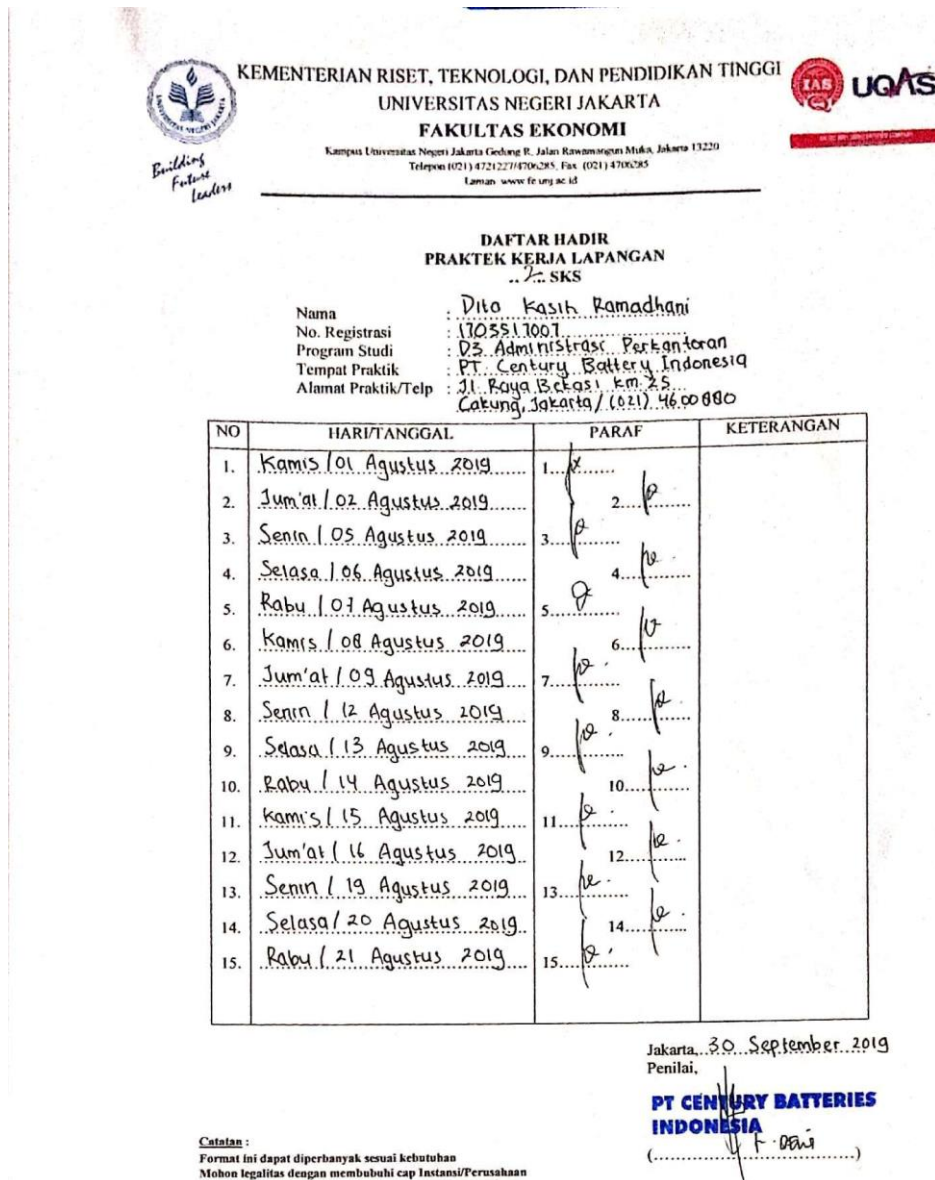 KEMENTERIAN RISET, TEKNOLOGI, DAN PENDIDIKAN TINGGI
UNIVERSITAS NEGERI JAKARTA
FAKULTAS EKONOMI
Kampus Universitas Negeri Jakarta Gedung R, Jalan Rawamangun Muka, Jakarta 13220
Telepon (021) 4721227/4706285, Fax. (021) 4706285
Laman www.fe.unj.ac.id
UNIVERSITAS NEGERI JAKARTA
Building
Future
Leaders
IAS UQAS
DAFTAR HADIR
PRAKTEK KERJA LAPANGAN
..2.. SKS
Nama : Dita Kasih Ramadhani
No. Registrasi : 1703517007
Program Studi : D3 Administrasi Perkantoran
Tempat Praktik : PT. Century Battery Indonesia
Alamat Praktik/Telp : Jl. Raya Bekasi km.25
Cakung, Jakarta / (021) 4600880
NO HARI/TANGGAL PARAF KETERANGAN
1. Kamis / 01 Agustus 2019 1
2. Jum'at / 02 Agustus 2019 2
3. Senin / 05 Agustus 2019 3
4. Selasa / 06 Agustus 2019 4
5. Rabu / 07 Agustus 2019 5
6. Kamis / 08 Agustus 2019 6
7. Jum'at / 09 Agustus 2019 7
8. Senin / 12 Agustus 2019 8
9. Selasa / 13 Agustus 2019 9
10. Rabu / 14 Agustus 2019 10
11. Kamis / 15 Agustus 2019 11
12. Jum'at / 16 Agustus 2019 12
13. Senin / 19 Agustus 2019 13
14. Selasa / 20 Agustus 2019 14
15. Rabu / 21 Agustus 2019 15
Jakarta, 30 September 2019
Penilai,
PT CENTURY BATTERIES
INDONESIA
(....................)
Catatan :
Format ini dapat diperbanyak sesuai kebutuhan
Mohon legalitas dengan membubuhi cap Instansi/Perusahaan